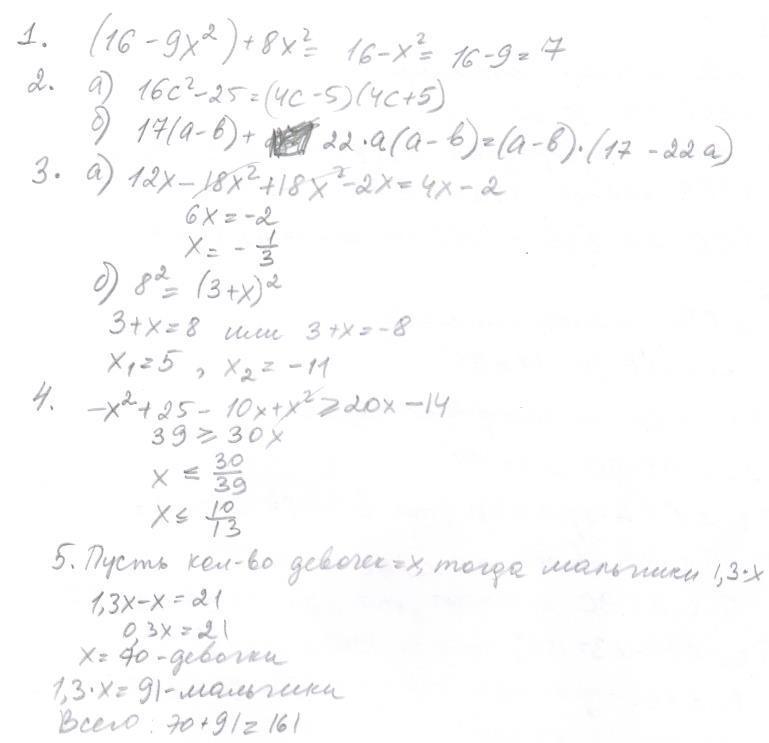 1. (16 - 9x²) + 8x² = 16 - x² = 16 - 9 = 7
2. а) 16c² - 25 = (4c - 5)(4c + 5)
б) 17(a - b) + 22·a(a - b) = (a - b)·(17 - 22a)
3. а) 12x - 18x² + 18x² - 2x = 4x - 2
6x = -2
x = -1/3
б) 8² = (3 + x)²
3 + x = 8 или 3 + x = -8
x₁ = 5, x₂ = -11
4. -x² + 25 - 10x + x² ≥ 20x - 14
39 ≥ 30x
x ≤ 30/39
x ≤ 10/13
5. Пусть кол-во девочек = x, тогда мальчики 1,3·x
1,3x - x = 21
0,3x = 21
x = 70 - девочки
1,3·x = 91 - мальчики
Всего: 70 + 91 = 161